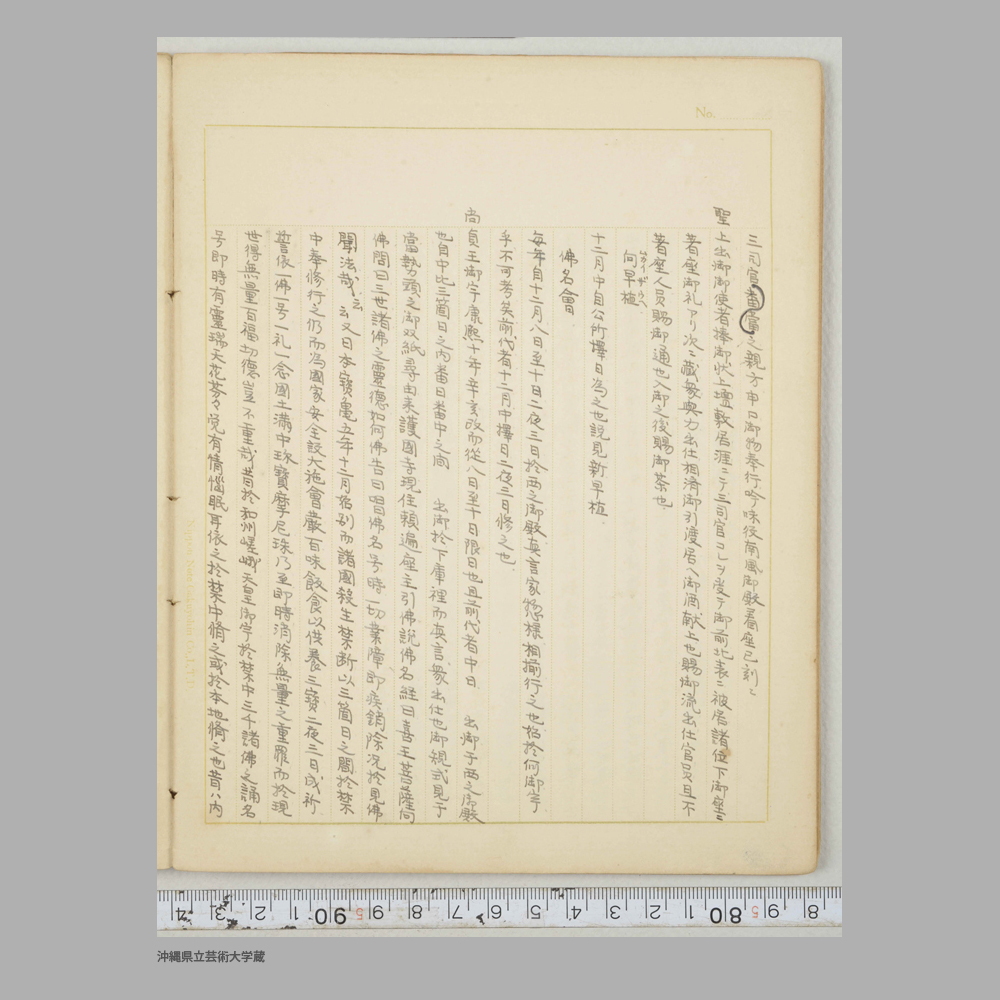 No.
三司官番當之親方申口御物奉行吟味役南風御殿着座已刻ニ
聖上出御御使者捧御状上壇敷居涯ニテ三司官コレヲ受テ御前北表ニ被居諸位下御座ニ
著座御礼アリ次ニ蔵衆與力出仕相済御引渡居ヘ御酒献上也賜御流出仕官員且不
著座人員賜御通也入御之後賜御茶也
向早植
十二月中自公所擇日為之也説見新早植
佛名會
毎年自十二月八日至十日二夜三日於西之御殿真言家惣様相揃行之也始於何御宇
乎不可考矣前代者十二月中擇日二夜三日修之也
尚貞王御宇康熙十年辛亥改而從八日至十日限日也且前代者中日 出御于西之御殿
也自中比三箇日之内番日番中之間 出御於下庫裡而真言衆出仕也御規式見于
當勢頭之御双紙尋由来護国寺現住頼遍座主引佛説佛名経曰喜王菩薩向
佛問曰三世諸佛之霊徳如何佛告曰唱佛名号時一切業障即疾銷除况於見佛
聞法哉云云又日本寳亀五年十二月始別而諸國殺生禁断以三箇日之間於禁
中奉修行之仍而為國家安全設大施會嚴百味飲食以供養三寳二夜三日或祈
誓依一佛一号一礼一念國土満中珎寳摩尼珠乃至即時消除無量之重罪而於現
世得無量百福功徳豈不重哉昔於和州嵯峨天皇御宇於禁中三千諸佛之誦名
号即時有靈瑞天花芬々覚有情惱眠耳依之於禁中脩之或於本地脩之也昔ハ内
4 3 2 1 90 9 8 7 6 5 4 3 2 1 80 9 8
沖縄県立芸術大学蔵